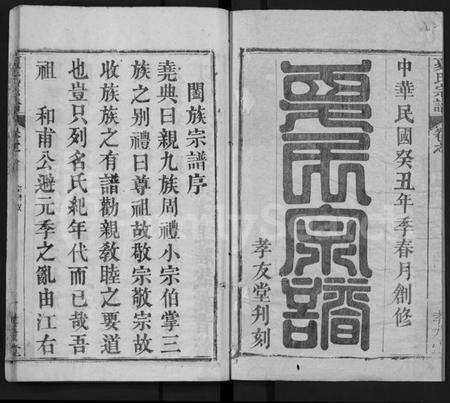 中華民國癸丑年季春月創修
氏宗譜
孝友堂刋刻
氏宗譜
闔族宗譜序
堯典曰親九族周禮小宗伯掌三
族之别禮曰尊祖故敬宗敬宗故
收族族之有譜勸親敎睦之要道
也豈只列名氏紀年代而已哉吾
祖 和甫公避元季之亂由江右